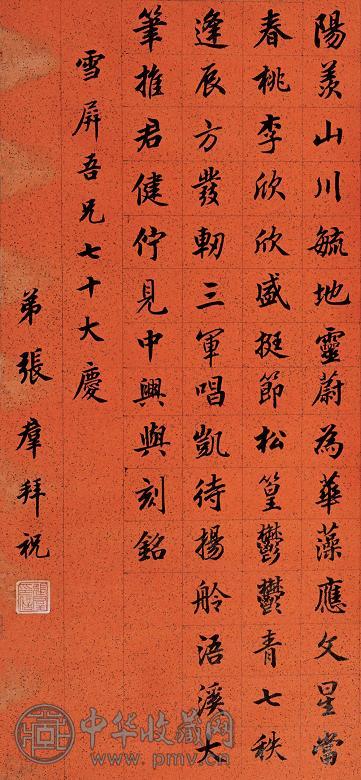 陽羨山川毓地靈蔚為華藻應文星當
春桃李欣欣盛挺節松篁鬱鬱青七秩
逢辰方發軔三軍唱凱待揚舲浯溪大
筆推君健佇見中興與刻銘
雪屏吾兄七十大慶
弟張羣拜祝
中华收藏网
www.pmv.cn